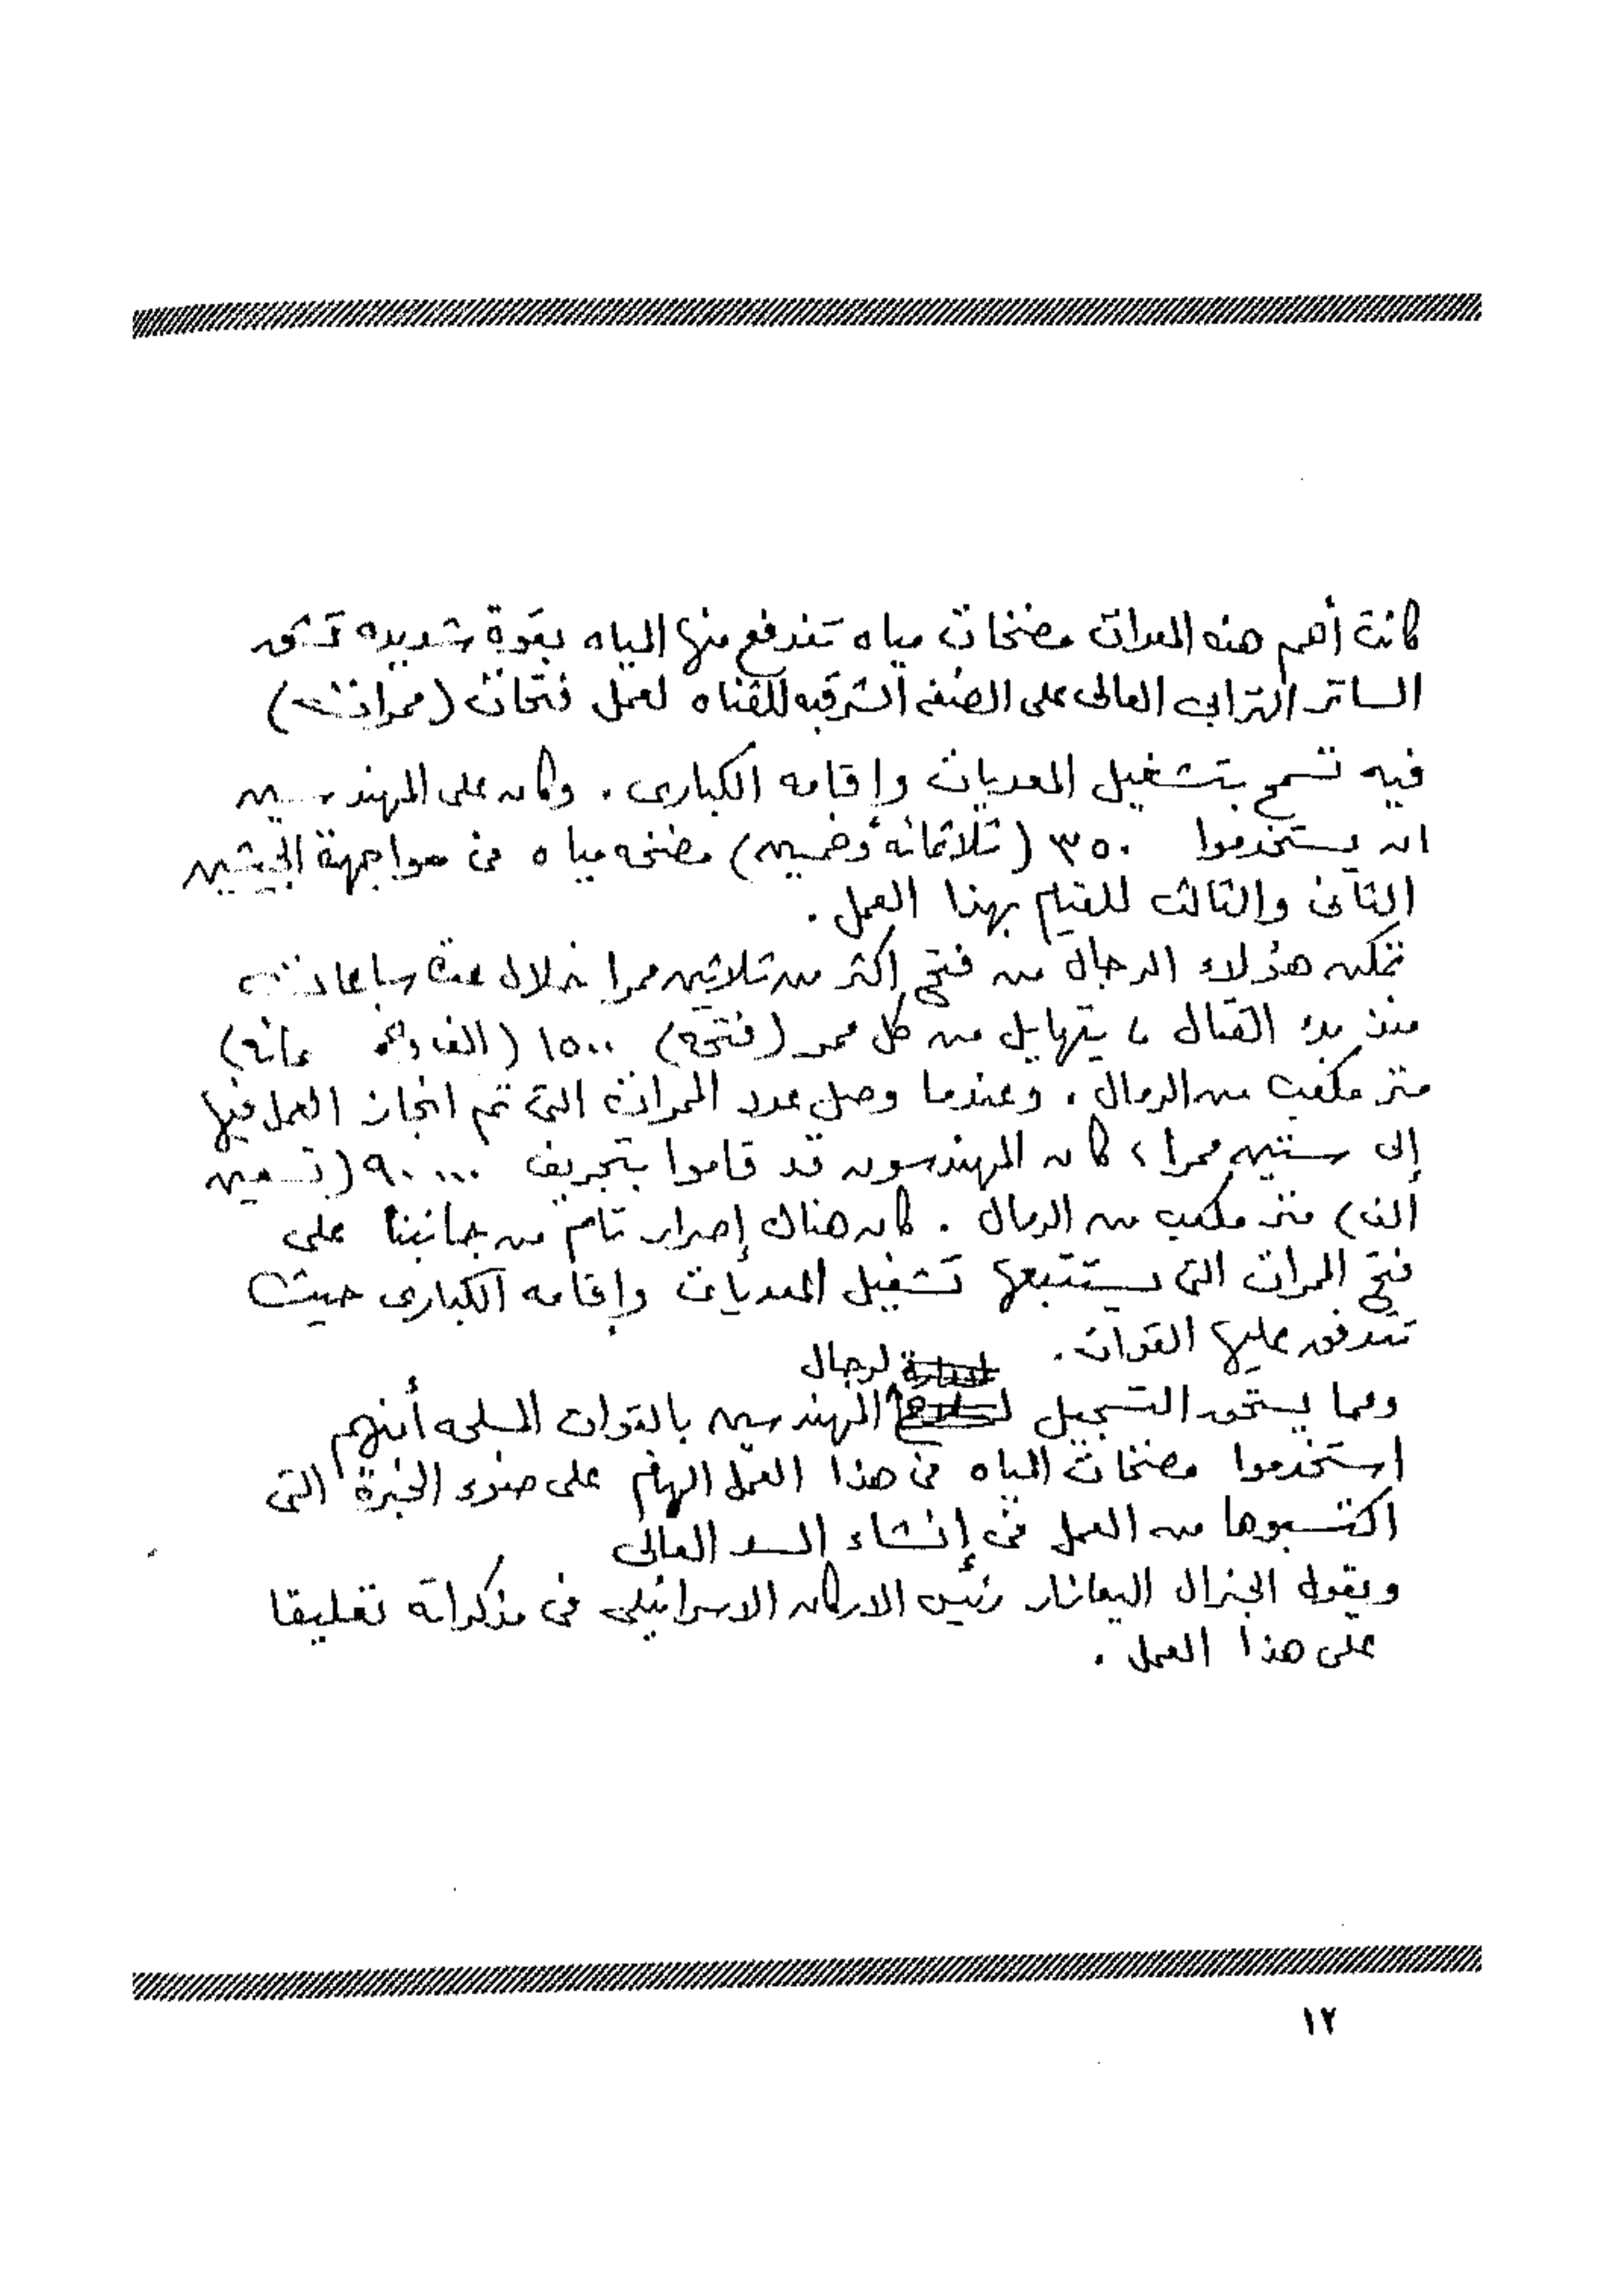 كانت أهم هذه المعدات مضخات مياه تندفع منها المياه بقوة شديده تشق
الساتر الترابى العالى على الضفه الشرقيه للقناه لعمل فتحات (ممرات)
فيه تسمح بتشغيل المعديات وإقامه الكبارى . وكان على المهندسين
ان يستخدموا ٣٥٠ (ثلاثمائة وخمسين) مضخه مياه فى مواجهة الجيشين
الثانى والثالث للقيام بهذا العمل .
تمكن هؤلاء الرجال من فتح اكثر من ثلاثين ممرا خلال عدة ساعات
منذ بدء القتال ، يتهايل من كل ممر (فتحه) ١٥٠٠ (الف وخمسمائه)
متر مكعب من الرمال . وعندما وصل عدد الممرات التى تم انجاز العمل فيها
إلى ستين ممرا ، كان المهندسون قد قاموا بتجريف ٩٠٠٠٠ (تسعين
ألف) متر مكعب من الرمال . كان هناك إصرار تام من جانبنا على
فتح الممرات التى يستتبعها تشغيل المعديات وإقامه الكبارى حيث
تتدفق عليها القوات .
لرجال
ومما يستحق التسجيل المهندسين بالقوات المسلحه أنهم
استخدموا مضخات المياه فى هذا العمل الهام على ضوء الخبرة التى
اكتسبوها من العمل فى إنشاء السد العالى
ويقول الجنرال اليعازار رئيس الاركان الاسرائيلى فى مذكراته تعليقا
على هذا العمل .
١٢